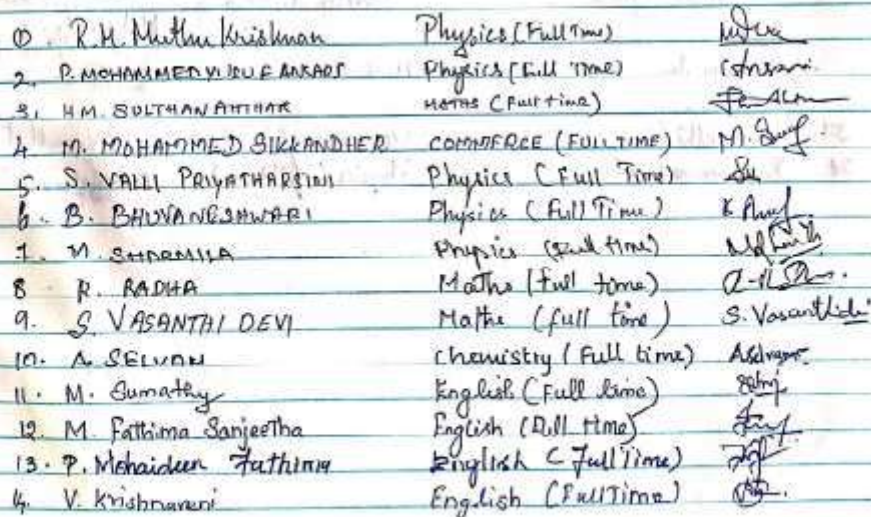 1. R.M. Muthu Krishnan Physics (Full Time)
2. P. MOHAMMED YUSUF ANSARI Physics (Full Time) Ansari.
3. HM. SULTHAN ATHHAR MATHS (Full time)
4 M. MOHAMMED SIKKANDHER COMMERCE (FULL TIME)
5. S. VALLI PRIYATHARSINI Physics (Full Time)
6. B. BHUVANESHWARI Physics (Full Time)
7. M. SHARMILA Physics (Full time)
8 R. RADHA Maths (full time)
9. S. VASANTHI DEVI Maths (full time) S. Vasanthi
10. A. SELVAN Chemistry (Full time)
11. M. Sumathy English (Full time)
12. M. Fathima Sanjeetha English (Full time)
13. P. Mohaideen Fathima English (Full Time)
14. V. Krishnaveni English (Full Time)